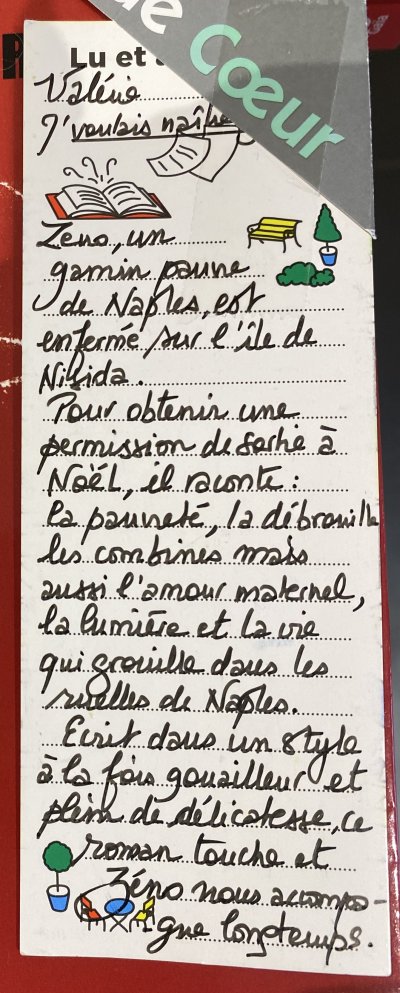 de Cœur
Lu et
Valérie
J'voulais naître
Zeno, un
gamin pauvre
de Naples, est
enfermé sur l'île de
Nisida.
Pour obtenir une
permission de sortie à
Noël, il raconte :
la pauvreté, la débrouille
les combines mais
aussi l'amour maternel,
la lumière et la vie
qui grouille dans les
ruelles de Naples.
Ecrit dans un style
à la fois gouailleur et
plein de délicatesse, ce
roman touche et
Zéno nous accompa-
gne longtemps.